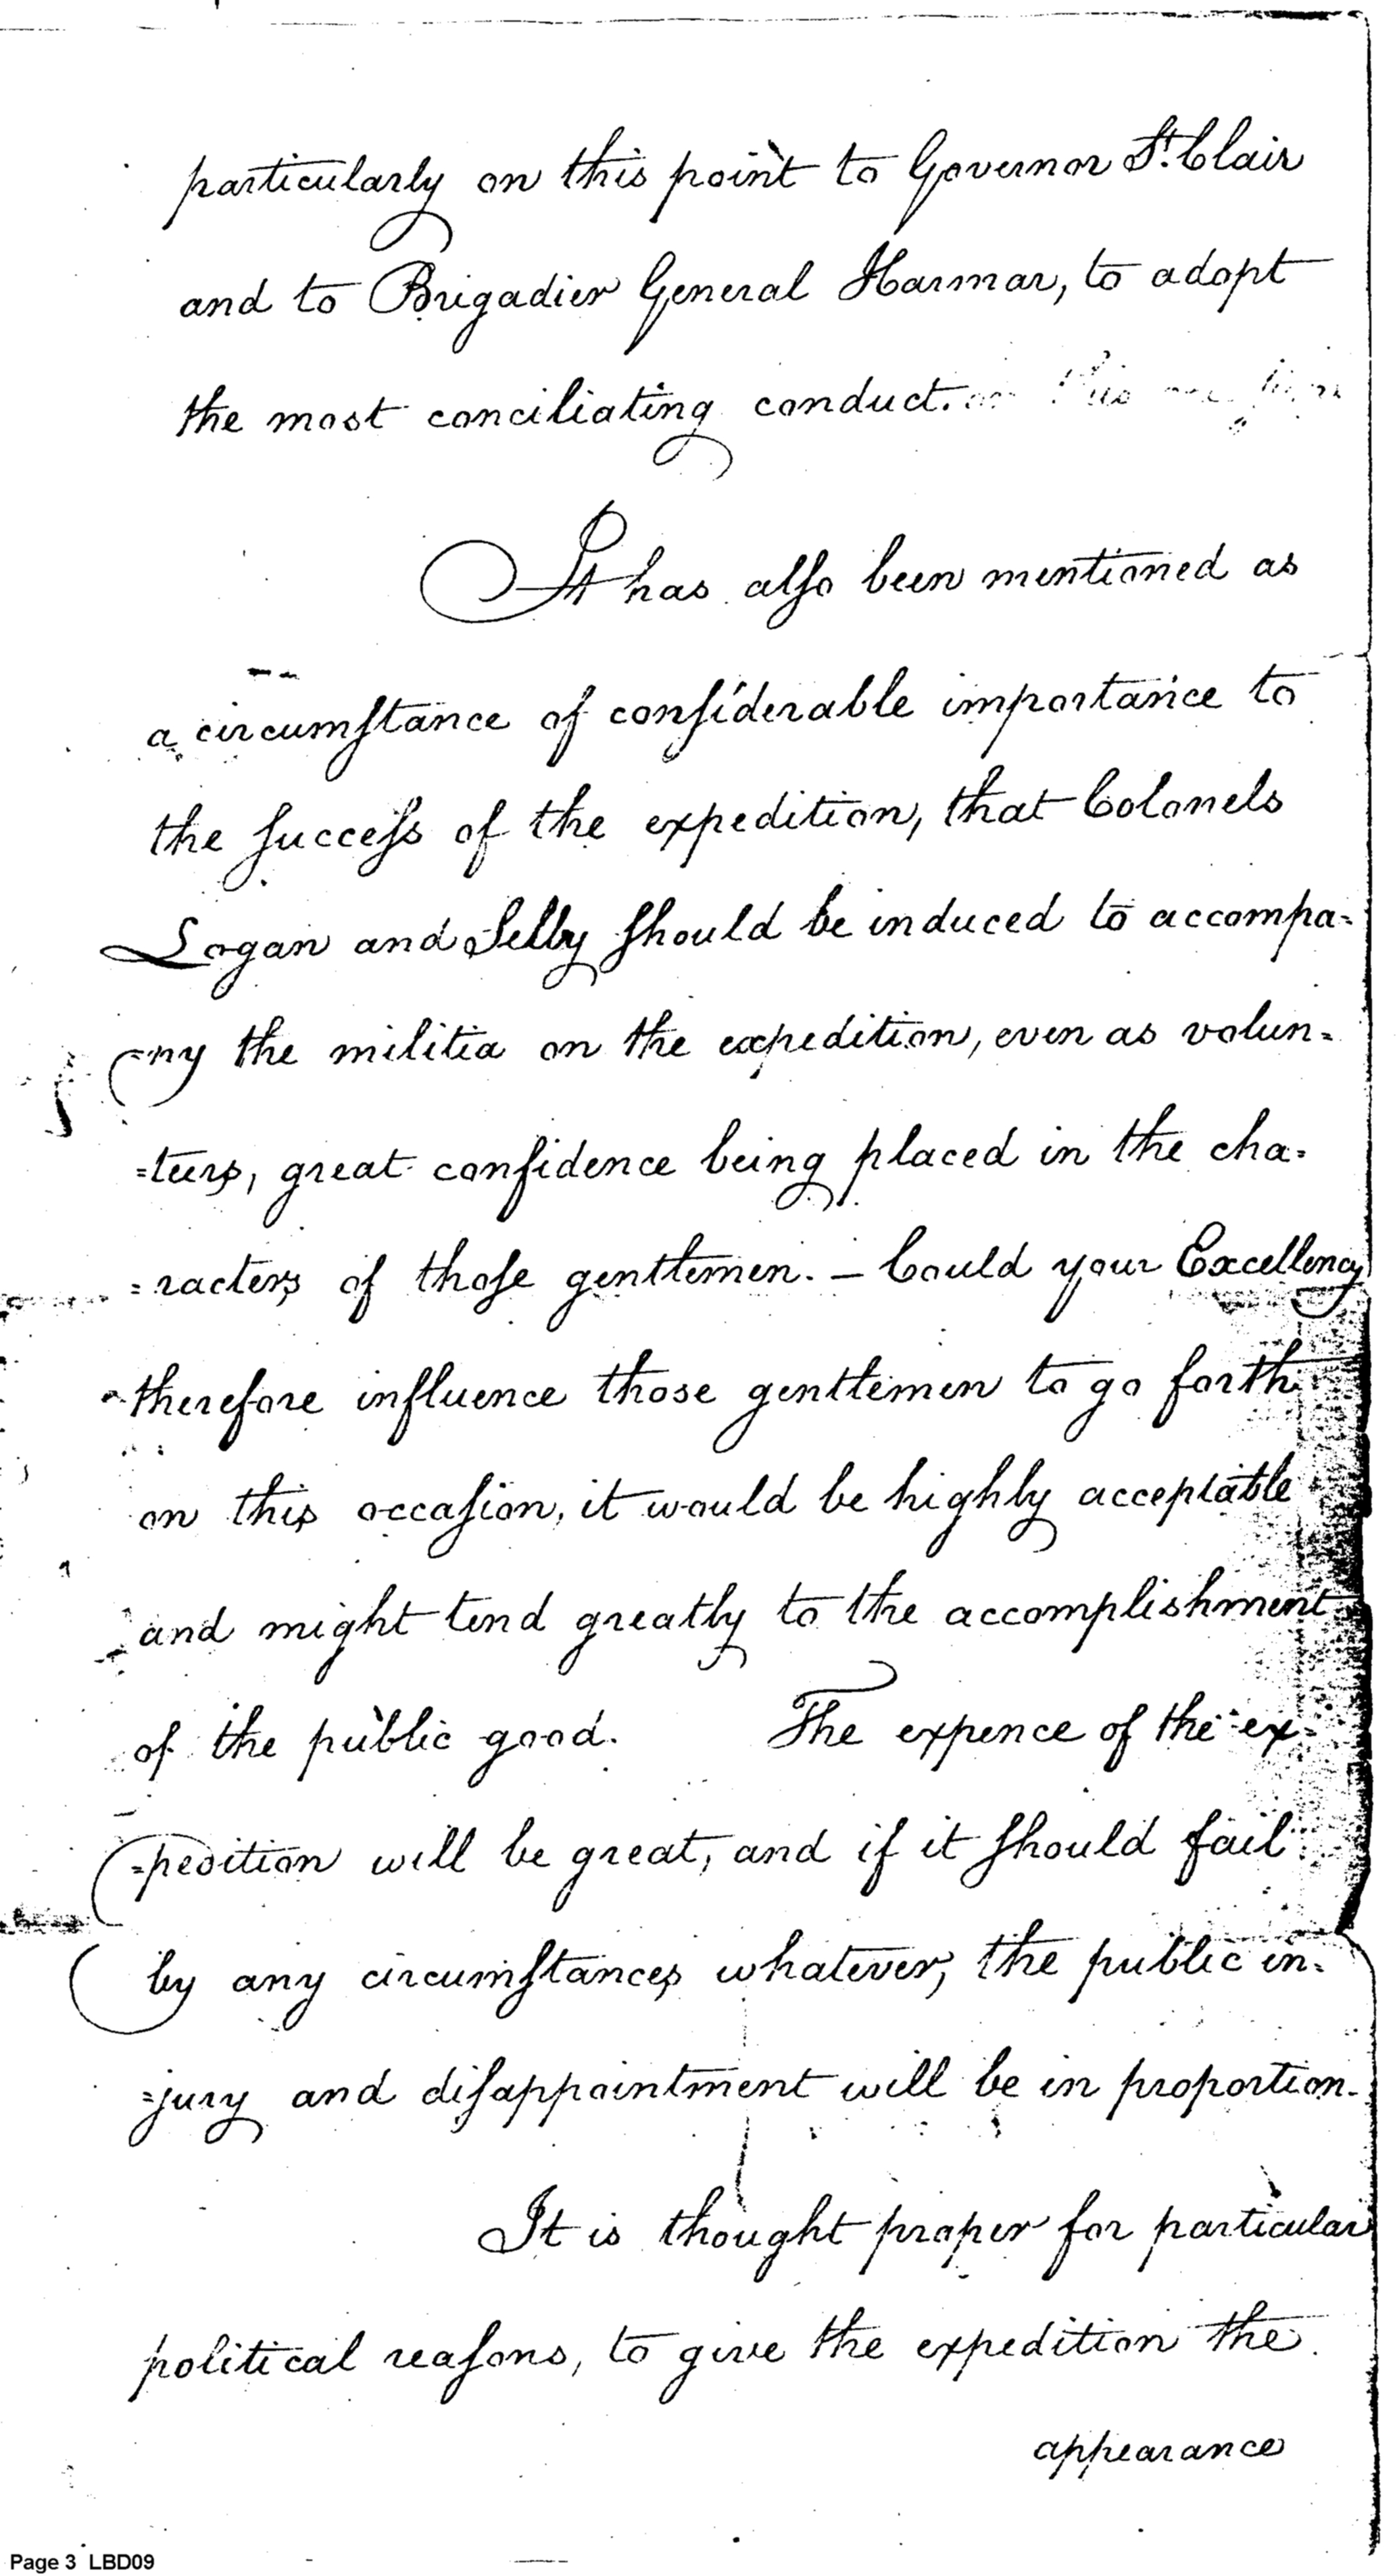 particularly on this point to Governor St. Clair
and to Brigadier General Harmar, to adopt
the most conciliating conduct.
It has alſo been mentioned as
a circumſtance of conſiderable importance to
the ſucceſs of the expedition, that Colonels
Logan and Selby ſhould be induced to accompa=
=ny the militia on the expedition, even as volun=
=teers, great confidence being placed in the cha=
=racters of thoſe gentlemen. — Could your Excellency
therefore influence those gentlemen to go forth
on this occaſion, it would be highly acceptable
and might tend greatly to the accomplishment
of the public good. The expence of the ex=
=pedition will be great, and if it ſhould fail
by any circumſtances whatever, the public in=
=jury and diſappointment will be in proportion.
It is thought proper for particular
political reaſons, to give the expedition the
appearance
Page 3 LBD09